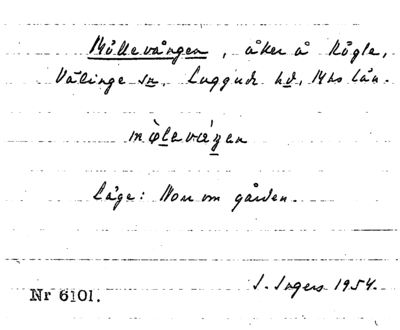 Möllevången, åker å Rögla,
Välinge sn. Luggude hd, Mhs län.
Läge: Norr om gården.
I. Ingers 1954.
Nr 6101.